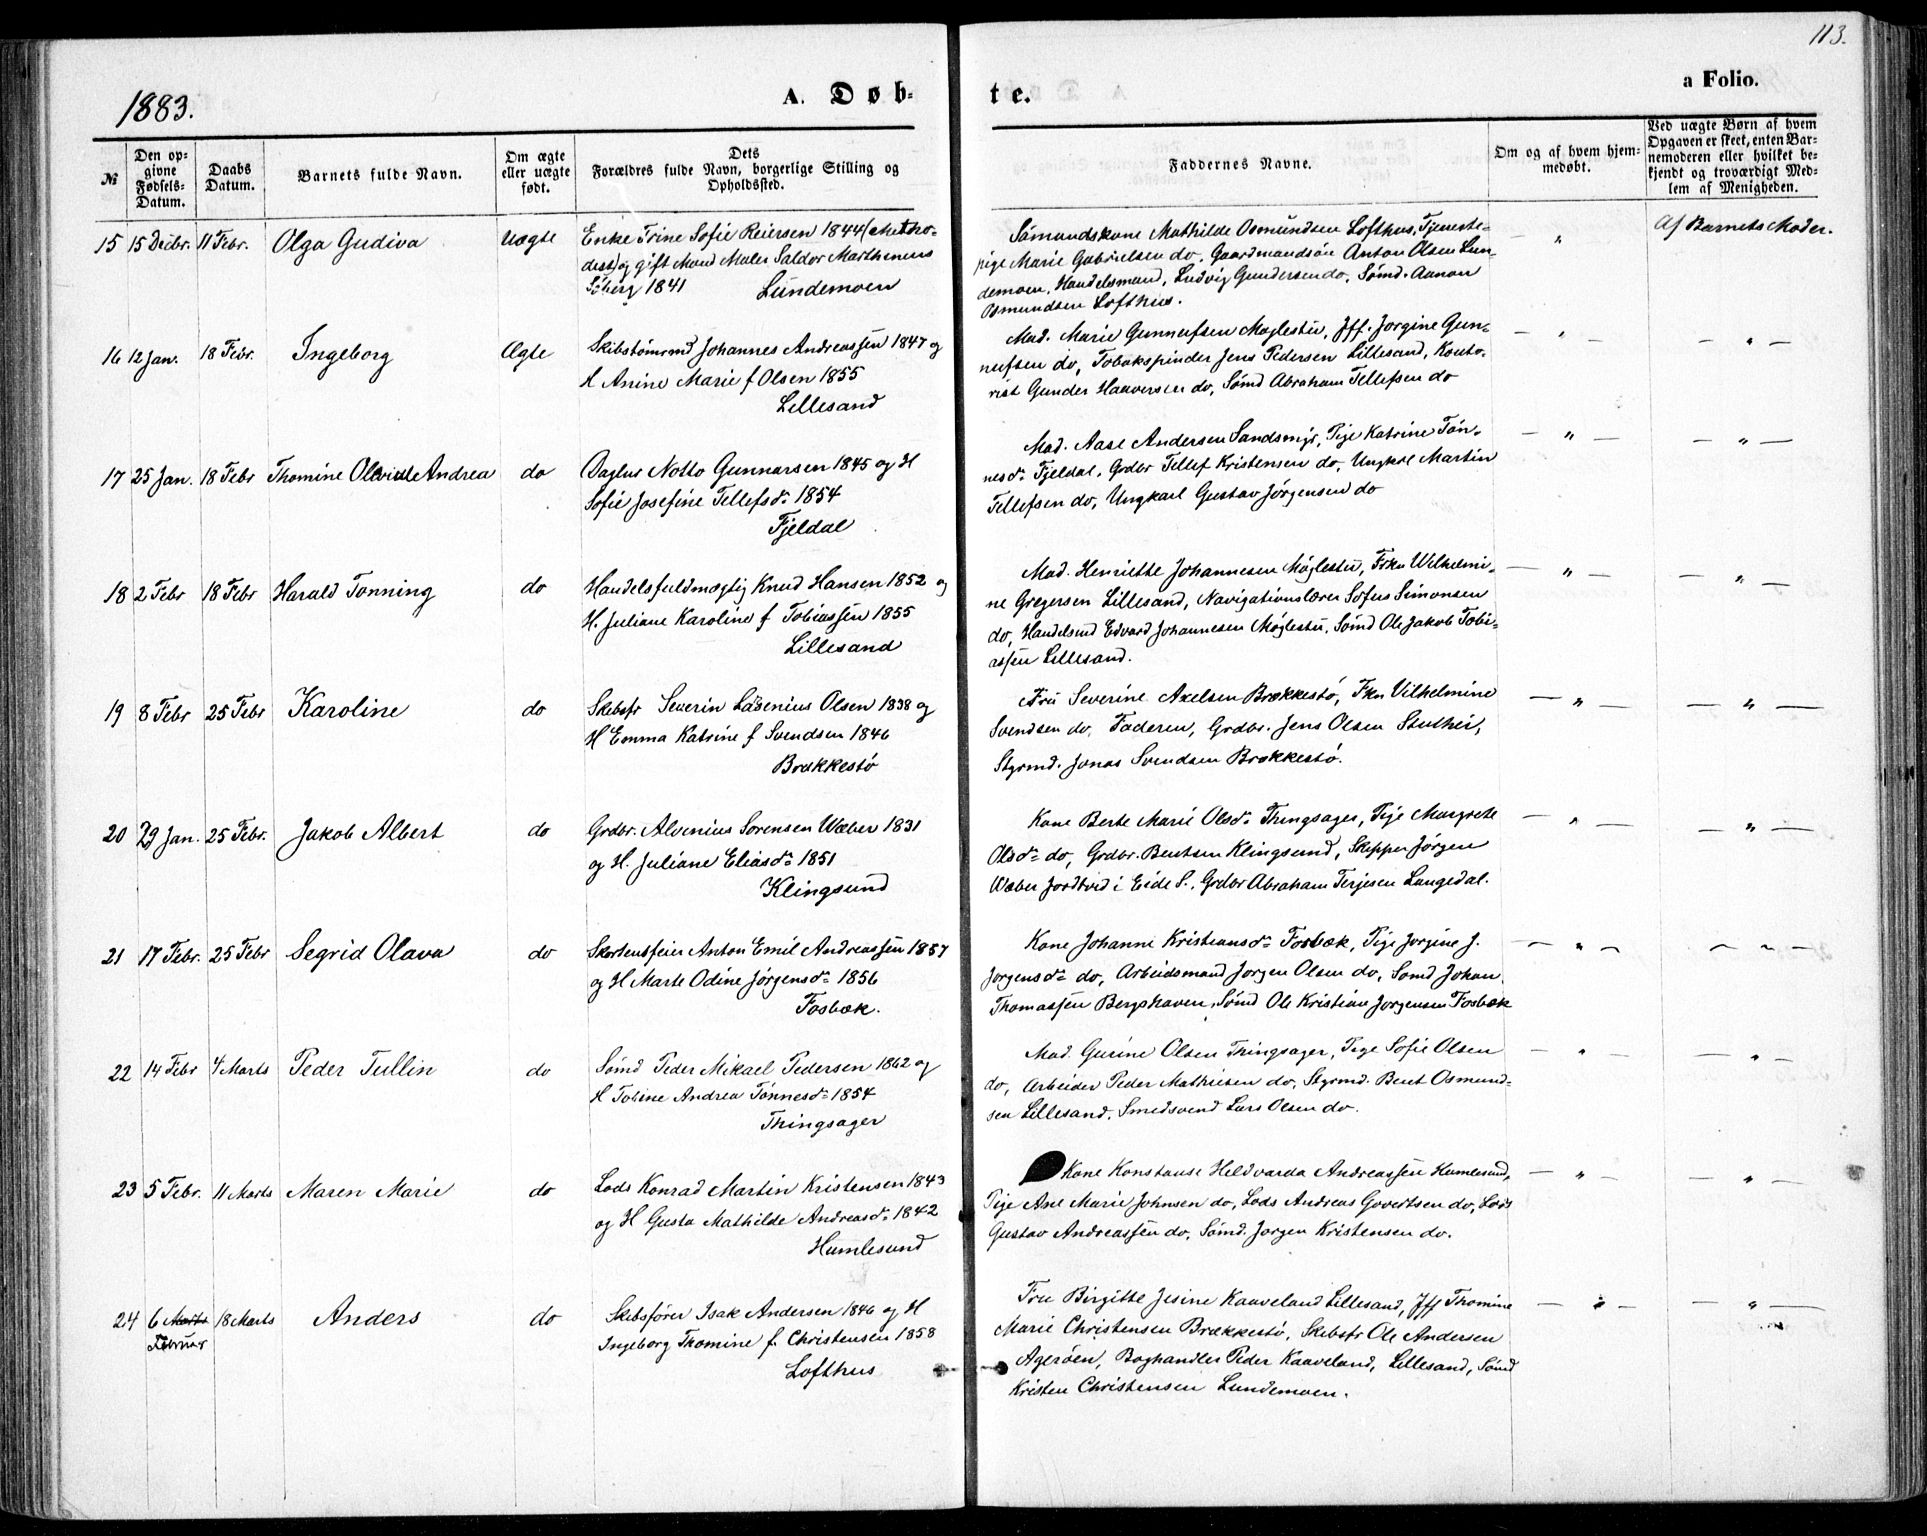 113.
1883.
A. Døb-
te.
a Folio.
№
Den op-
givne
Fødsels-
Datum.
Daabs
Datum.
Barnets fulde Navn.
Om ægte
eller uægte
født.
Dets
Forældres fulde Navn, borgerlige Stilling og
Opholdssted.
Faddernes Navne.
Om og af hvem hjem-
medøbt.
Ved uægte Børn af hvem
Opgaven er skeet, enten Bar-
nemoderen eller hvilket be-
kjendt og troværdigt Med-
lem af Menigheden.
15 15 Decbr. 11 Febr. Olga Gudiva Uægte
Enke Trine Sofie Reiersen 1844 (Metho-
dist) og gift Mand Maler Saldor Marthenius
Söberg 1841 Lundemoen
Sömandskone Mathilde Osmundsen Lofthus, Tjeneste-
pige Marie Gabrielsen do, Gaardmandsön Anton Olsen Lun-
demoen, Handelsmand, Ludvig Gundersen do, Sömd. Aanon
Osmundsen Lofthus.
— „ —
Af Barnets Moder.
16 12 Jan. 18 Febr. Ingeborg Ægte
Skibstömrmd Johannes Andreassen 1847 og
H Anine Marie f Olsen 1855
Lillesand
Mad. Marie Gunneufsen Møglestu, Jff. Jorgine Gun-
neufsen do, Tobakspinder Jens Pedersen Lillesand, Konto-
rist Gunder Haaversen do, Sømd Abraham Tellefsen do
— „ —
— „ —
17 25 Jan. 18 Febr Thomine Olvide Andrea do
Daglnr Notto Gunnarsen 1845 og H
Sofie Josefine Tellefsdr 1854
Fjeldal
Mad. Aase Andersen Sandsmyr, Pige Katrine Tön-
nesdr Fjeldal, Grdbr Tellef Kristensen do, Ungkarl Martin
Tellefsen do, Ungkarl Gustav Jørgensen do
— „ —
— „ —
18 2 Febr 18 Febr Harald Tonning do
Handelsfuldmægtig Knud Hansen 1852 og
H. Juliane Karoline f Tobiassen 1855
Lillesand
Mad. Henriette Johannesen Møglestu, Frkn Wilhelmi-
ne Gregersen Lillesand, Navigationslærer Sofus Simonsen
do, Handelsmd Edvard Johannesen Møglestu, Sømd Ole Jakob Tobi-
assen Lillesand.
— „ —
— „ —
19 8 Febr 25 Febr Karoline do
Skibsfr Severin Lasenius Olsen 1838 og
H Emma Katrine f Svendsen 1846
Brækkestö
Fru Severine Axelsen Brækkestö, Frkn Vilhelmine
Svendsen do, Faderen, Grdbr. Jens Olsen Stuthei,
Styrmd. Jonas Svendsen Brækkestö.
— „ —
— „ —
20 29 Jan. 25 Febr. Jakob Albert do
Grdbr. Alvenius Sorensen Wæber 1831
og H. Juliane Eliasdr 1851
Klingsund
Kone Berte Marie Olsdr Thingsager, Pige Margrete
Olsdr do, Grdbr. Bentsen Klingsund, Skipper Jørgen
Wæber Jordtved i Eide S., Grdbr Abraham Terjesen Langedal.
— „ —
— „ —
21 17 Febr. 25 Febr Segrid Olava do
Skorstensfeier Anton Emil Andreassen 1857
og H Marte Odine Jørgensdr 1856
Fosbæk.
Kone Johanne Kristiansdr Fosbæk, Pige Jorgine J.
Jorgensdr do, Arbeidsmand Jorgen Olsen do, Sömd Johan
Thomassen Bergshaven, Sömd Ole Kristian Jorgensen Fosbæk
— „ —
— „ —
22 14 Febr 4 Marts Peder Tullin do
Sömd Peder Mikael Pedersen 1862 og
H Tobine Andrea Tönnesdr 1854
Thingsager
Mad. Gurine Olsen Thingsager, Pige Sofie Olsen
do, Arbeider Peder Mathiesen do, Styrmd. Bent Osmund-
sen Lillesand. Smedsvend Lars Olsen do.
— „ —
— „ —
23 5 Febr. 11 Marts Maren Marie do
Lods Konrad Martin Kristensen 1843
og H Gusta Mathilde Andreasdr 1842
Humlesund
Kone Konstanse Heldvarda Andreassen Humlesund,
Pige Ane Marie Johnsen do, Lods Andreas Govertsen do, Lods
Gustav Andreassen do, Sömd. Jorgen Kristensen do.
— „ —
— „ —
24 6 Marts 18 Marts Anders do
Februar
Skibsfører Isak Andersen 1846 og H
Ingeborg Thomine f. Christensen 1858
Lofthus
Fru Birgitte Jesine Kaaveland Lillesand, Jff Thomine
Marie Christensen Brækkestö, Skibsfr Ole Andersen
Ageröen, Boghandler Peder Kaaveland, Lillesand, Sömd
Kristen Christensen Lundemoen.
— „ —
— „ —